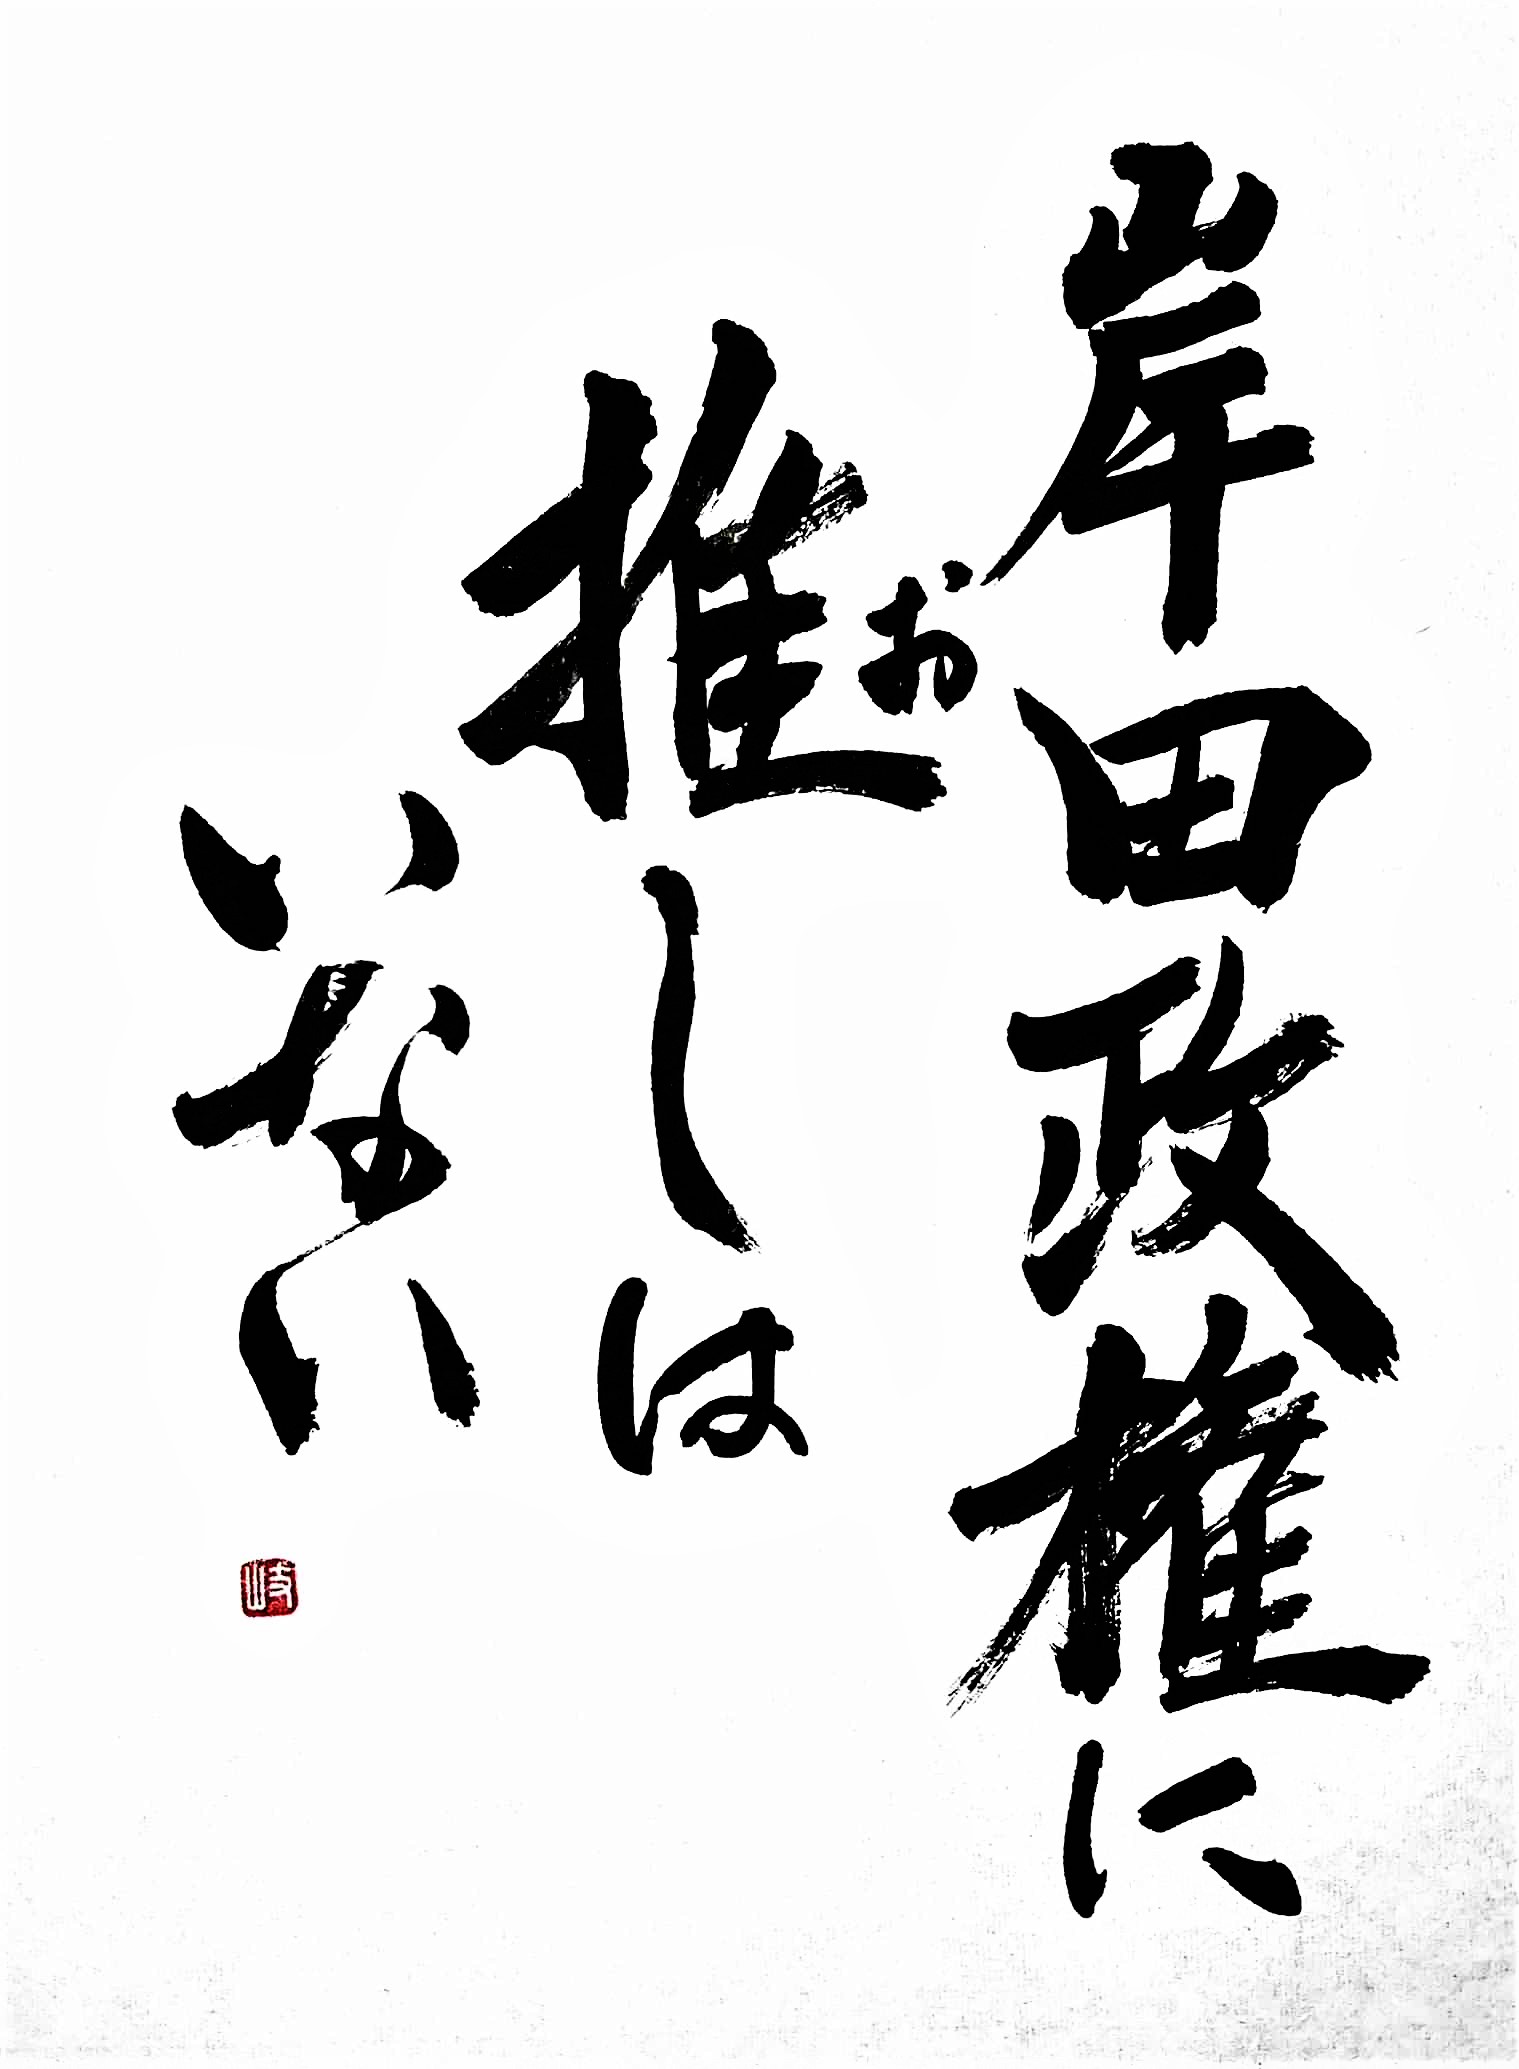 岸田政権に
お
推しは
いない
岐